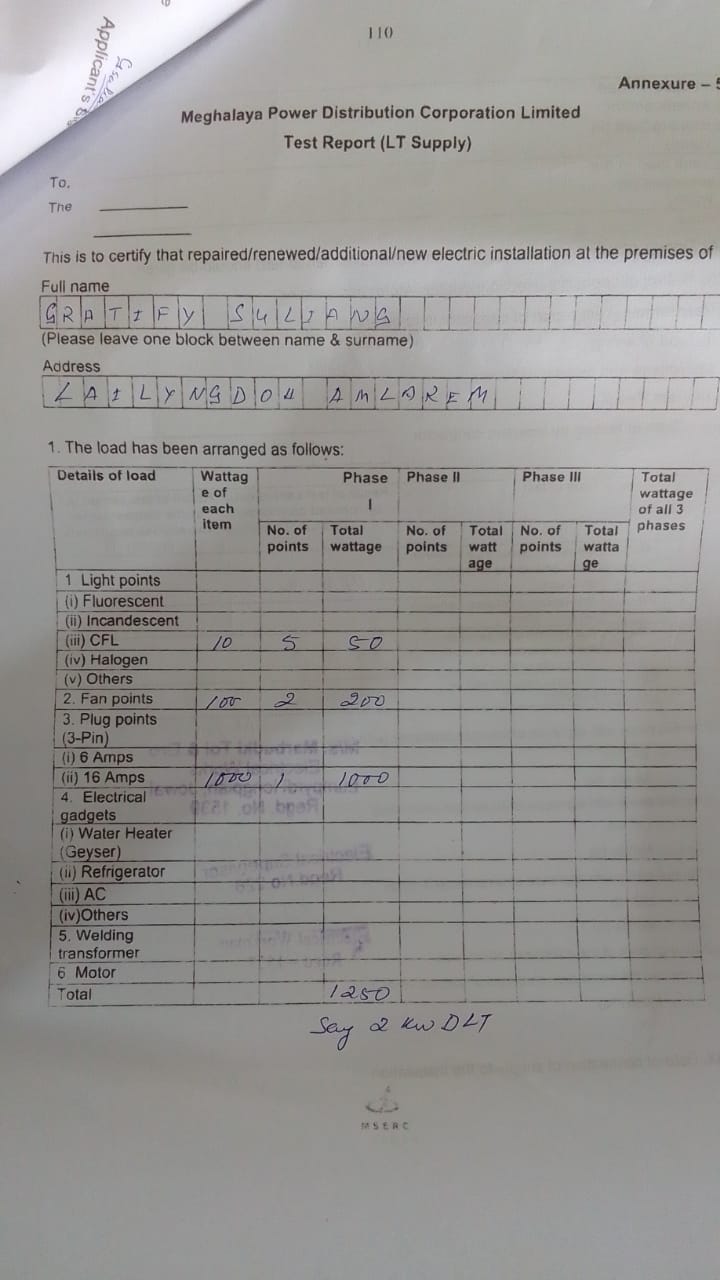 110
Applicant's
Annexure – 5
Meghalaya Power Distribution Corporation Limited
Test Report (LT Supply)
To,
The
This is to certify that repaired/renewed/additional/new electric installation at the premises of
Full name
GRATIFY SULIANG
(Please leave one block between name & surname)
Address
LAILYNGDOH AMLAREM
1. The load has been arranged as follows:
Details of load Wattag e of each item Phase I Phase II Phase III Total wattage of all 3 phases
No. of points Total wattage No. of points Total watt age No. of points Total watta ge
1 Light points
(i) Fluorescent
(ii) Incandescent
(iii) CFL 10 5 50
(iv) Halogen
(v) Others
2. Fan points 100 2 200
3. Plug points
(3-Pin)
(i) 6 Amps
(ii) 16 Amps 1000 1 1000
4. Electrical
gadgets
(i) Water Heater
(Geyser)
(ii) Refrigerator
(iii) AC
(iv)Others
5. Welding
transformer
6 Motor
Total 1250
Say 2 kw DLT
MSERC